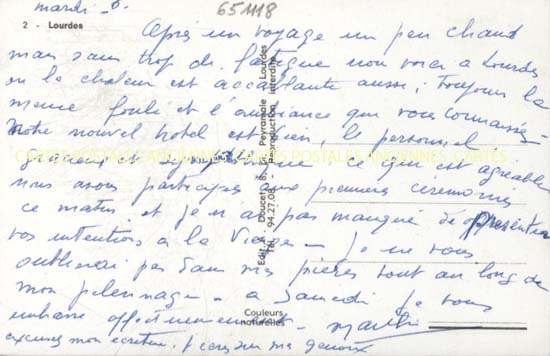 mardi 6.
651118
2 - Lourdes
Après un voyage un peu chaud
mais sans trop de fatigue nous voici à Lourdes
où la chaleur est accablante aussi, Toujours la
même foule et l'ambiance que vous connaissez
Notre nouvel hôtel est bien, le personnel
gracieux et sympathique ce qui est agréable
nous avons participé aux premières cérémonies
ce matin et je n'ai pas manqué de présenter
vos intentions à la Vierge - je ne vous
oublierai pas dans mes prières tout au long de
mon pèlerinage - à Samedi je vous
embrasse affectueusement -
excusez mon écriture, j'écris sur mes genoux
Edit. A. Doucet, 8, Pl. Peyramale - Lourdes
Tél. 94.27.08. - Reproduction interdite
Couleurs
naturelles